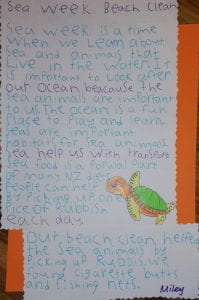 Sea Week Beach Clean
Sea week is a time
When we Learn about
Sea and animals that
Live in the water. It
is important to Look after
our ocean beacause the
Sea animals are important
to us. The ocean is a fun
Place to Play and learn
Seas are important
habitats for Sea animals
Sea help us with transport
Sea food is a Popular Part
of many NZ diets
People can help
By Picking up one
Pice of Rubbish
each day.
Our beach clean helped
the Sea animals by
Picking up Rubbis. we
found cigarette butts
and fishing nets.
Miley